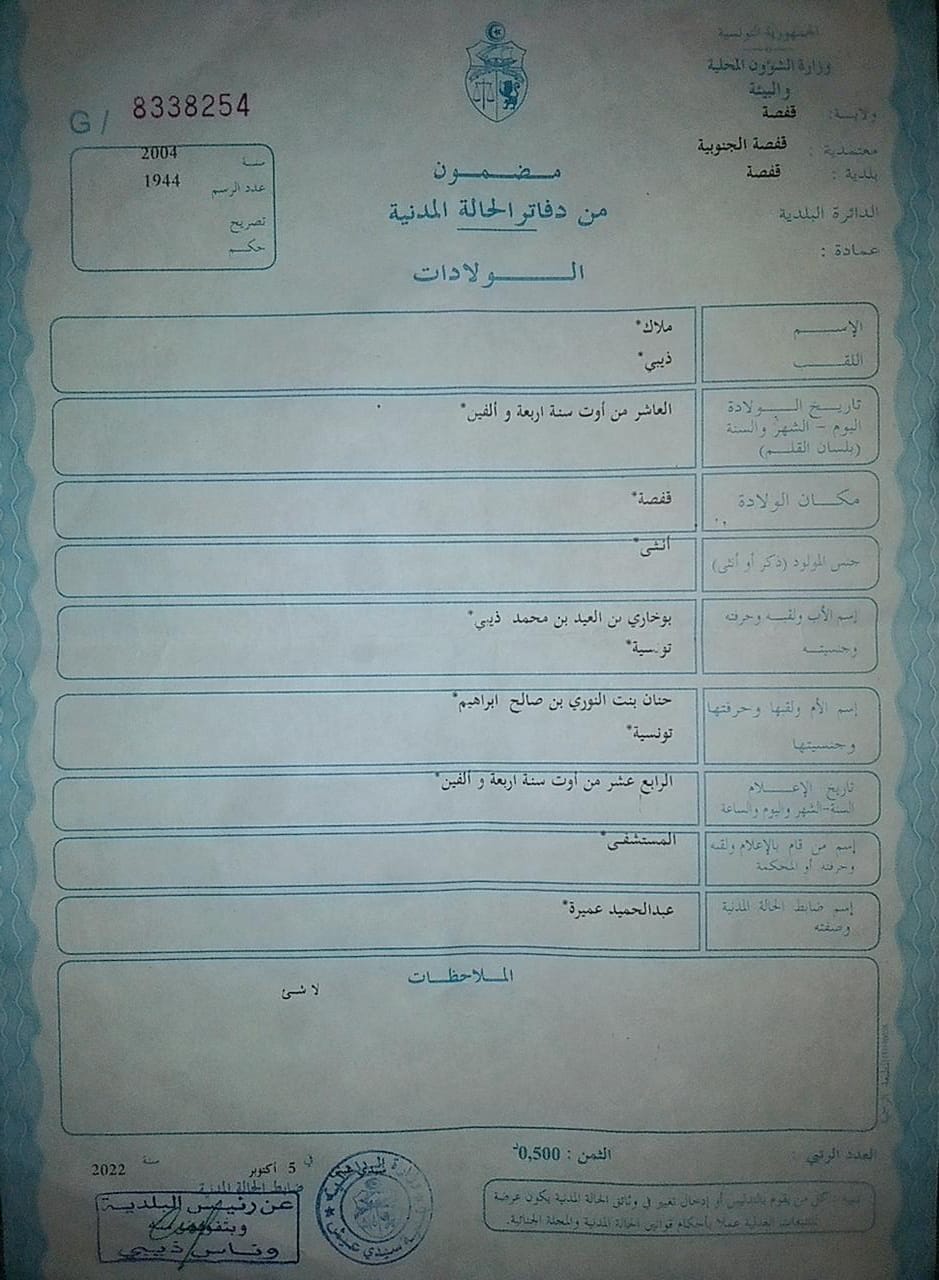 الجمهورية التونسية
وزارة الشؤون المحلية
والبيئة
ولاية: قفصة
معتمدية : قفصة الجنوبية
بلدية : قفصة
الدائرة البلدية
عمادة :
G / 8338254
سنة 2004
عدد الرسم 1944
تصريح
حكم
مضمون
من دفاتر الحالة المدنية
الولادات
الإسم ملاك*
اللقب ذيبي*
تاريخ الولادة العاشر من أوت سنة اربعة و ألفين*
اليوم - الشهر والسنة
(بلسان القلم)
مكان الولادة قفصة*
جنس المولود (ذكر أو أنثى) أنثى*
إسم الأب ولقبه وحرفته بوخاري بن العيد بن محمد ذيبي*
وجنسيته تونسية*
إسم الأم ولقبها وحرفتها حنان بنت النوري بن صالح ابراهيم*
وجنسيتها تونسية*
تاريخ الإعلام الرابع عشر من أوت سنة اربعة و ألفين*
السنة-الشهر واليوم والساعة
إسم من قام بالإعلام ولقبه المستشفى*
وحرفته أو المحكمة
إسم ضابط الحالة المدنية عبدالحميد عميرة*
وصفته
الملاحظات
لا شئ
العدد الرتبي :
الثمن : 0,500د
تنبيه : كل من يقوم بالتدليس أو إدخال تغيير في وثائق الحالة المدنية يكون عرضة
للتتبعات العدلية عملا بأحكام قوانين الحالة المدنية والمجلة الجنائية.
في 5 أكتوبر سنة 2022
ضابط الحالة المدنية
عن رئيس البلدية
وبتفويض منه
وناس ذيبي
سيدي عيش